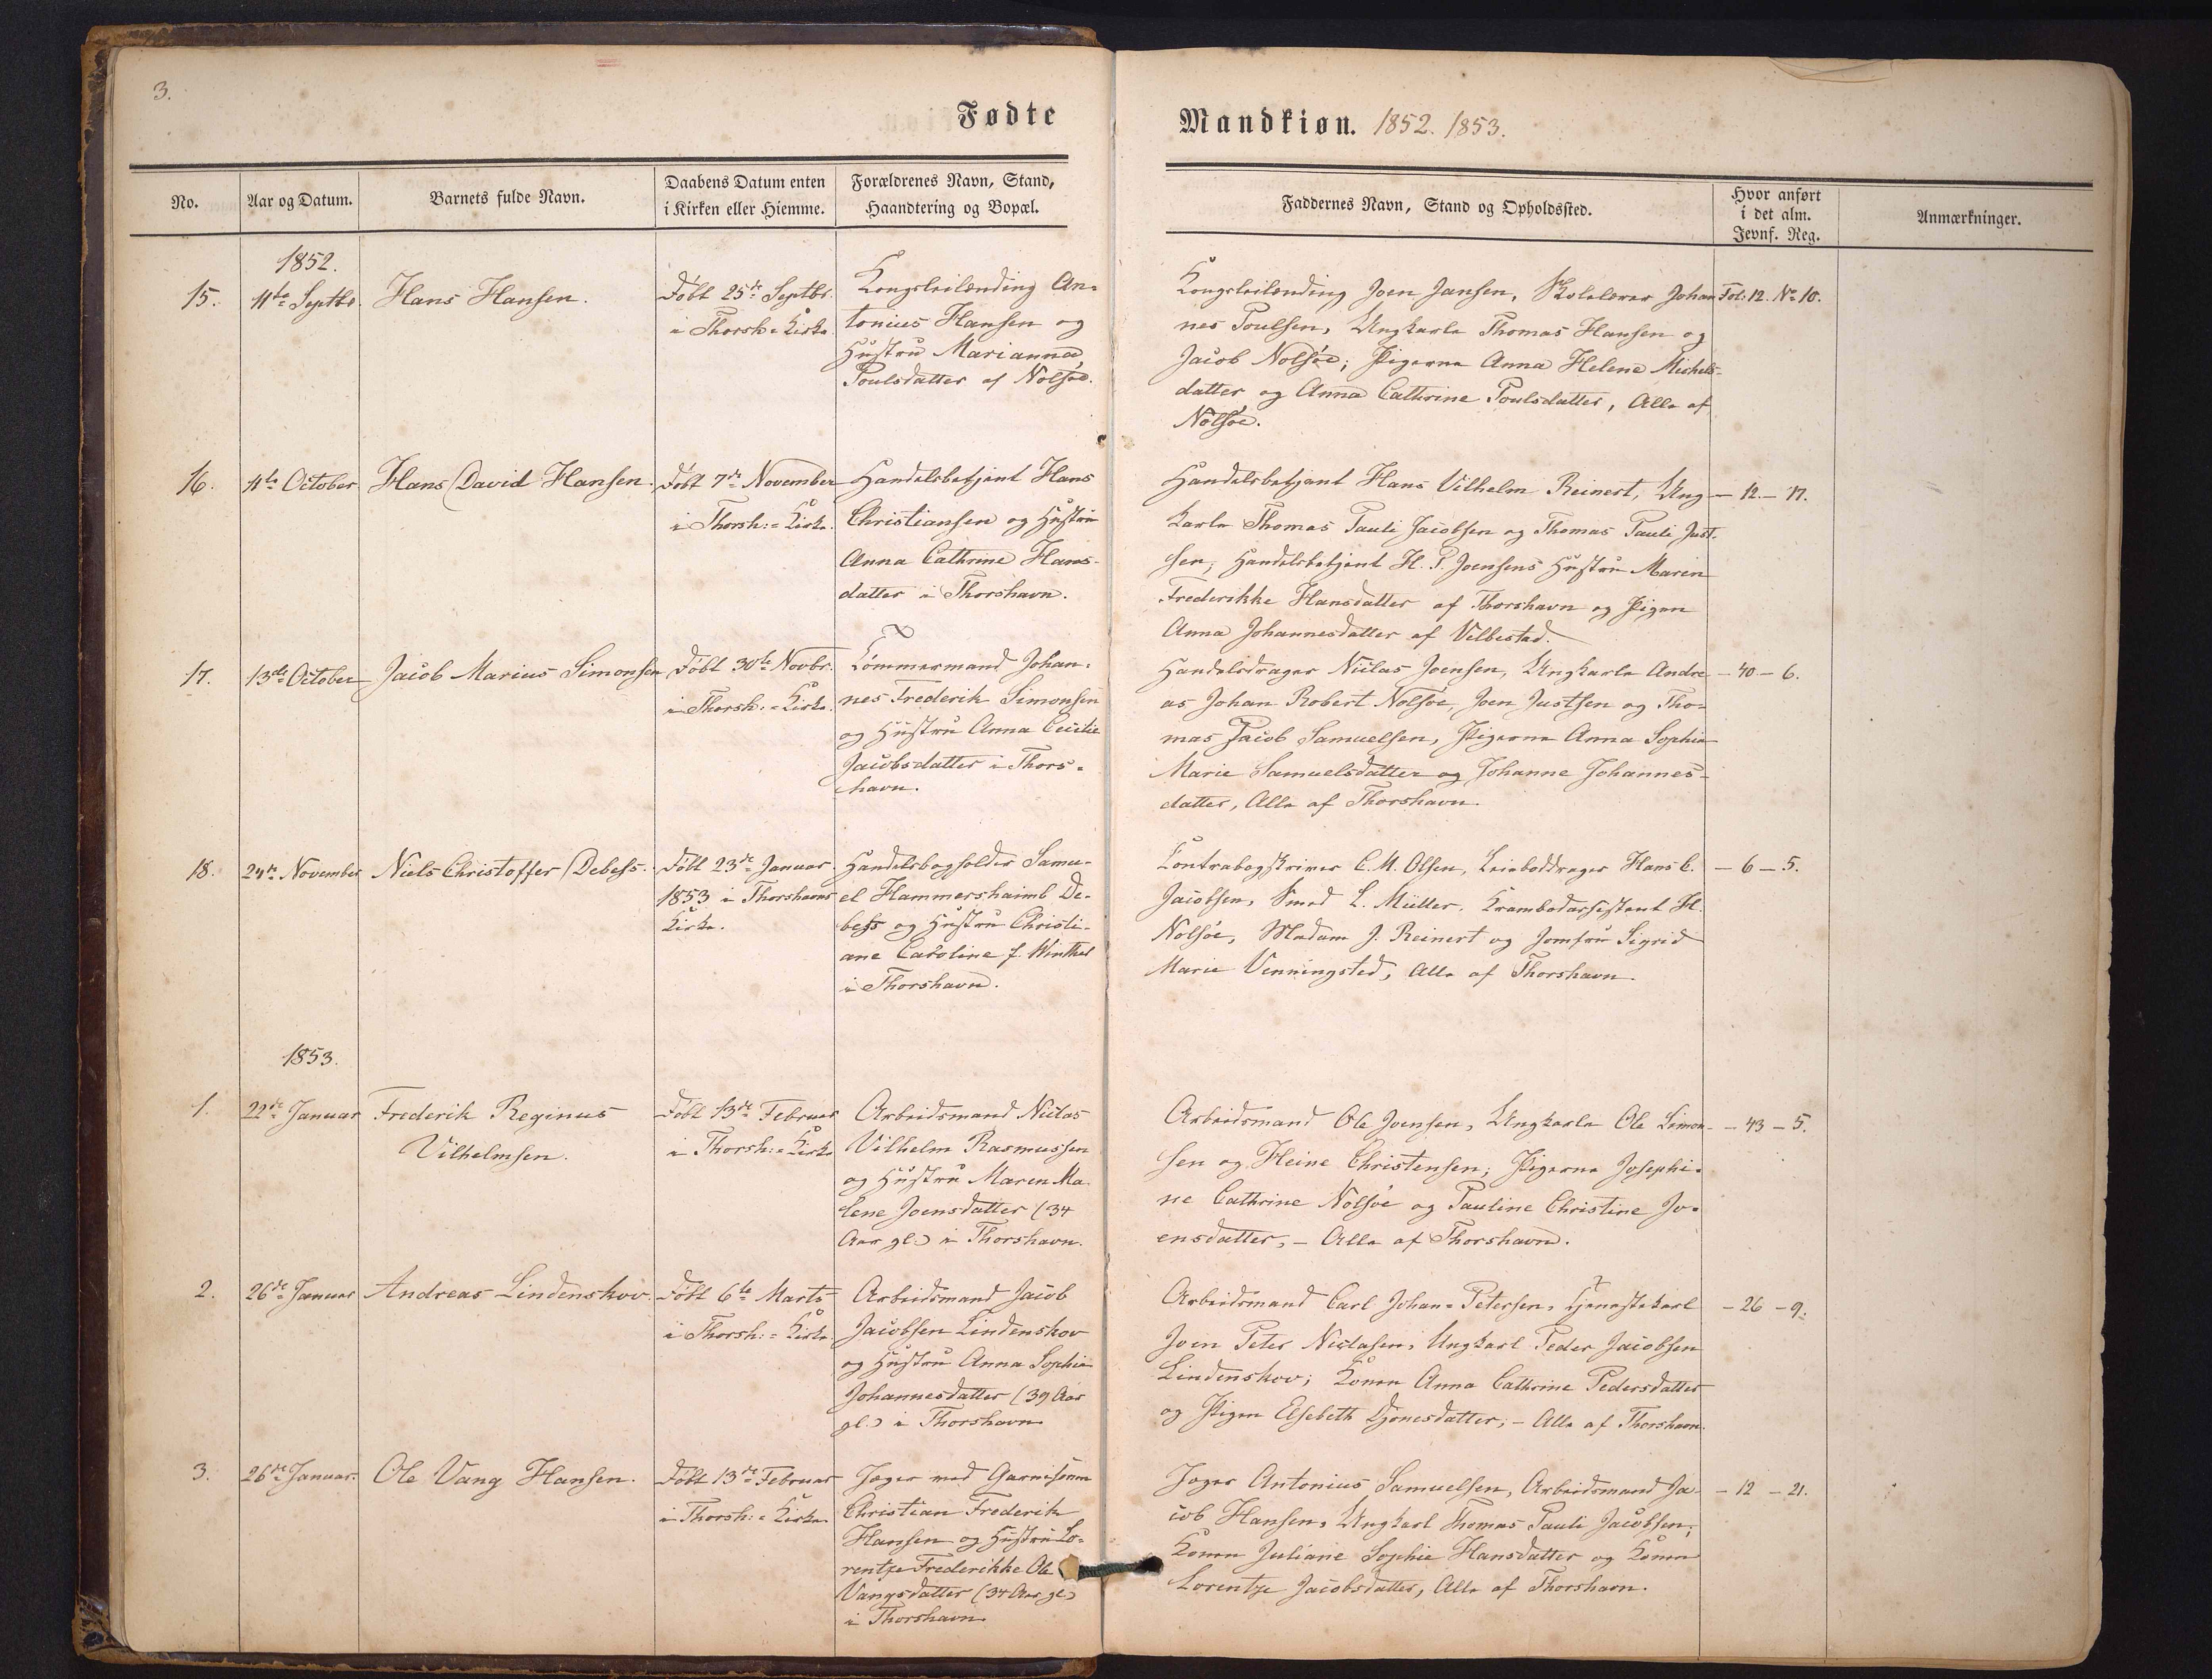 3.
Fødte
Mandkiøn. 1852. 1853.
No.
Aar og Datum.
Barnets fulde Navn.
Daabens Datum enten
i Kirken eller Hiemme.
Forældrenes Navn, Stand,
Haandtering og Bopæl.
Faddernes Navn, Stand og Opholdssted.
Hvor anført
i det alm.
Jevnf. Reg.
Anmærkninger.
1852.
15.
11te Septbr.
Hans Hansen.
Døbt 25de Septbr.
i Thorsh: Kirke
Kongsleilending An-
tonius Hansen og
Hustru Marianna
Poulsdatter af Nolsøe.
Kongsleilending Joen Jansen, Skolelærer Johan
nes Poulsen, Ungkarle Thomas Hansen og
Jacob Nolsøe; Pigerne Anna Helene Michels-
datter og Anna Cathrine Poulsdatter, Alle af
Nolsøe.
Fol: 12. No 10.
16.
11te October
Hans David Hansen.
Døbt 7de November
i Thorsh:= Kirke.
Handelsbetjent Hans
Christiansen og Hustru
Anna Cathrine Hans-
datter i Thorshavn.
Handelsbetjent Hans Vilhelm Reinert, Ung-
karle Thomas Pauli Jacobsen og Thomas Pauli Just-
sen; Handelsbetjent H. P. Joensens Hustru Maren
Frederikke Hansdatter af Thorshavn og Pigen
Anna Johannesdatter af Velbestad.
— 12. — 17.
17.
13de October
Jacob Marius Simonsen
Døbt 30te Novbr.
i Thorsh:= Kirke.
Tømmermand Johan-
nes Frederik Simonsen
og Hustru Anna Cecilie
Jacobsdatter i Thors-
havn.
Handelsdrager Niclas Joensen, Ungkarle Andre
as Johan Robert Nolsøe, Joen Justsen og Tho-
mas Jacob Samuelsen, Pigerne Anna Sophia
Marie Samuelsdatter og Johanne Johannes-
datter, Alle af Thorshavn.
— 40 — 6.
18.
24de November
Niels Christoffer Debess.
Døbt 23de Januar
1853 i Thorshavns
Kirke.
Handelsbogholder Samu-
el Hammershaimb De-
bess og Hustru Christi-
ane Caroline f. Winther
i Thorshavn.
Contrabogskriver C. M. Olsen, Kraboddrager Hans C.
Jacobsen, Smed L. Müller, Krambodassistent H.
Nolsøe, Madam J. Reinert og Jomfru Sigrid
Marie Venningsted, Alle af Thorshavn.
— 6 — 5.
1853.
1.
22de Januar
Frederik Reginus
Vilhelmsen.
Døbt 13de Februar
i Thorsh:= Kirke
Arbeidsmand Niclas
Vilhelm Rasmussen
og Hustru Maren Ma-
lene Joensdatter (34
Aar gl.) i Thorshavn.
Arbeidsmand Ole Joensen, Ungkarle Ole Simon-
sen og Heine Christensen; Pigerne Josephi-
ne Cathrine Nolsøe og Pauline Christine Jo-
ensdatter, — Alle af Thorshavn.
— 43 — 5.
2.
26de Januar
Andreas Lindenskov.
Døbt 6te Marts
i Thorsh:= Kirke.
Arbeidsmand Jacob
Jacobsen Lindenskov
og Hustru Anna Sophia
Johannesdatter (39 Aar
gl.) i Thorshavn
Arbeidsmand Carl Johan Petersen, Tjenestekarl
Joen Peter Niclasen, Ungkarl Peder Jacobsen
Lindenskov; Konen Anna Cathrine Pedersdatter
og Pigen Elsebeth Djonesdatter; — Alle af Thorshavn.
— 26 — 9.
3.
26de Januar.
Ole Vang Hansen.
Døbt 13de Februar
i Thorsh:= Kirke
Jæger ved Garnisonen
Christian Frederik
Hansen og Hustru Lo-
rentze Frederikke Ole
Vangsdatter (34 Aar gl)
i Thorshavn
Jæger Antonius Samuelsen, Arbeidsmand Ja-
cob Hansen, Ungkarl Thomas Pauli Jacobsen;
Konen Juliane Sophie Hansdatter og Konen
Lorentze Jacobsdatter, Alle af Thorshavn.
— 12 — 21.